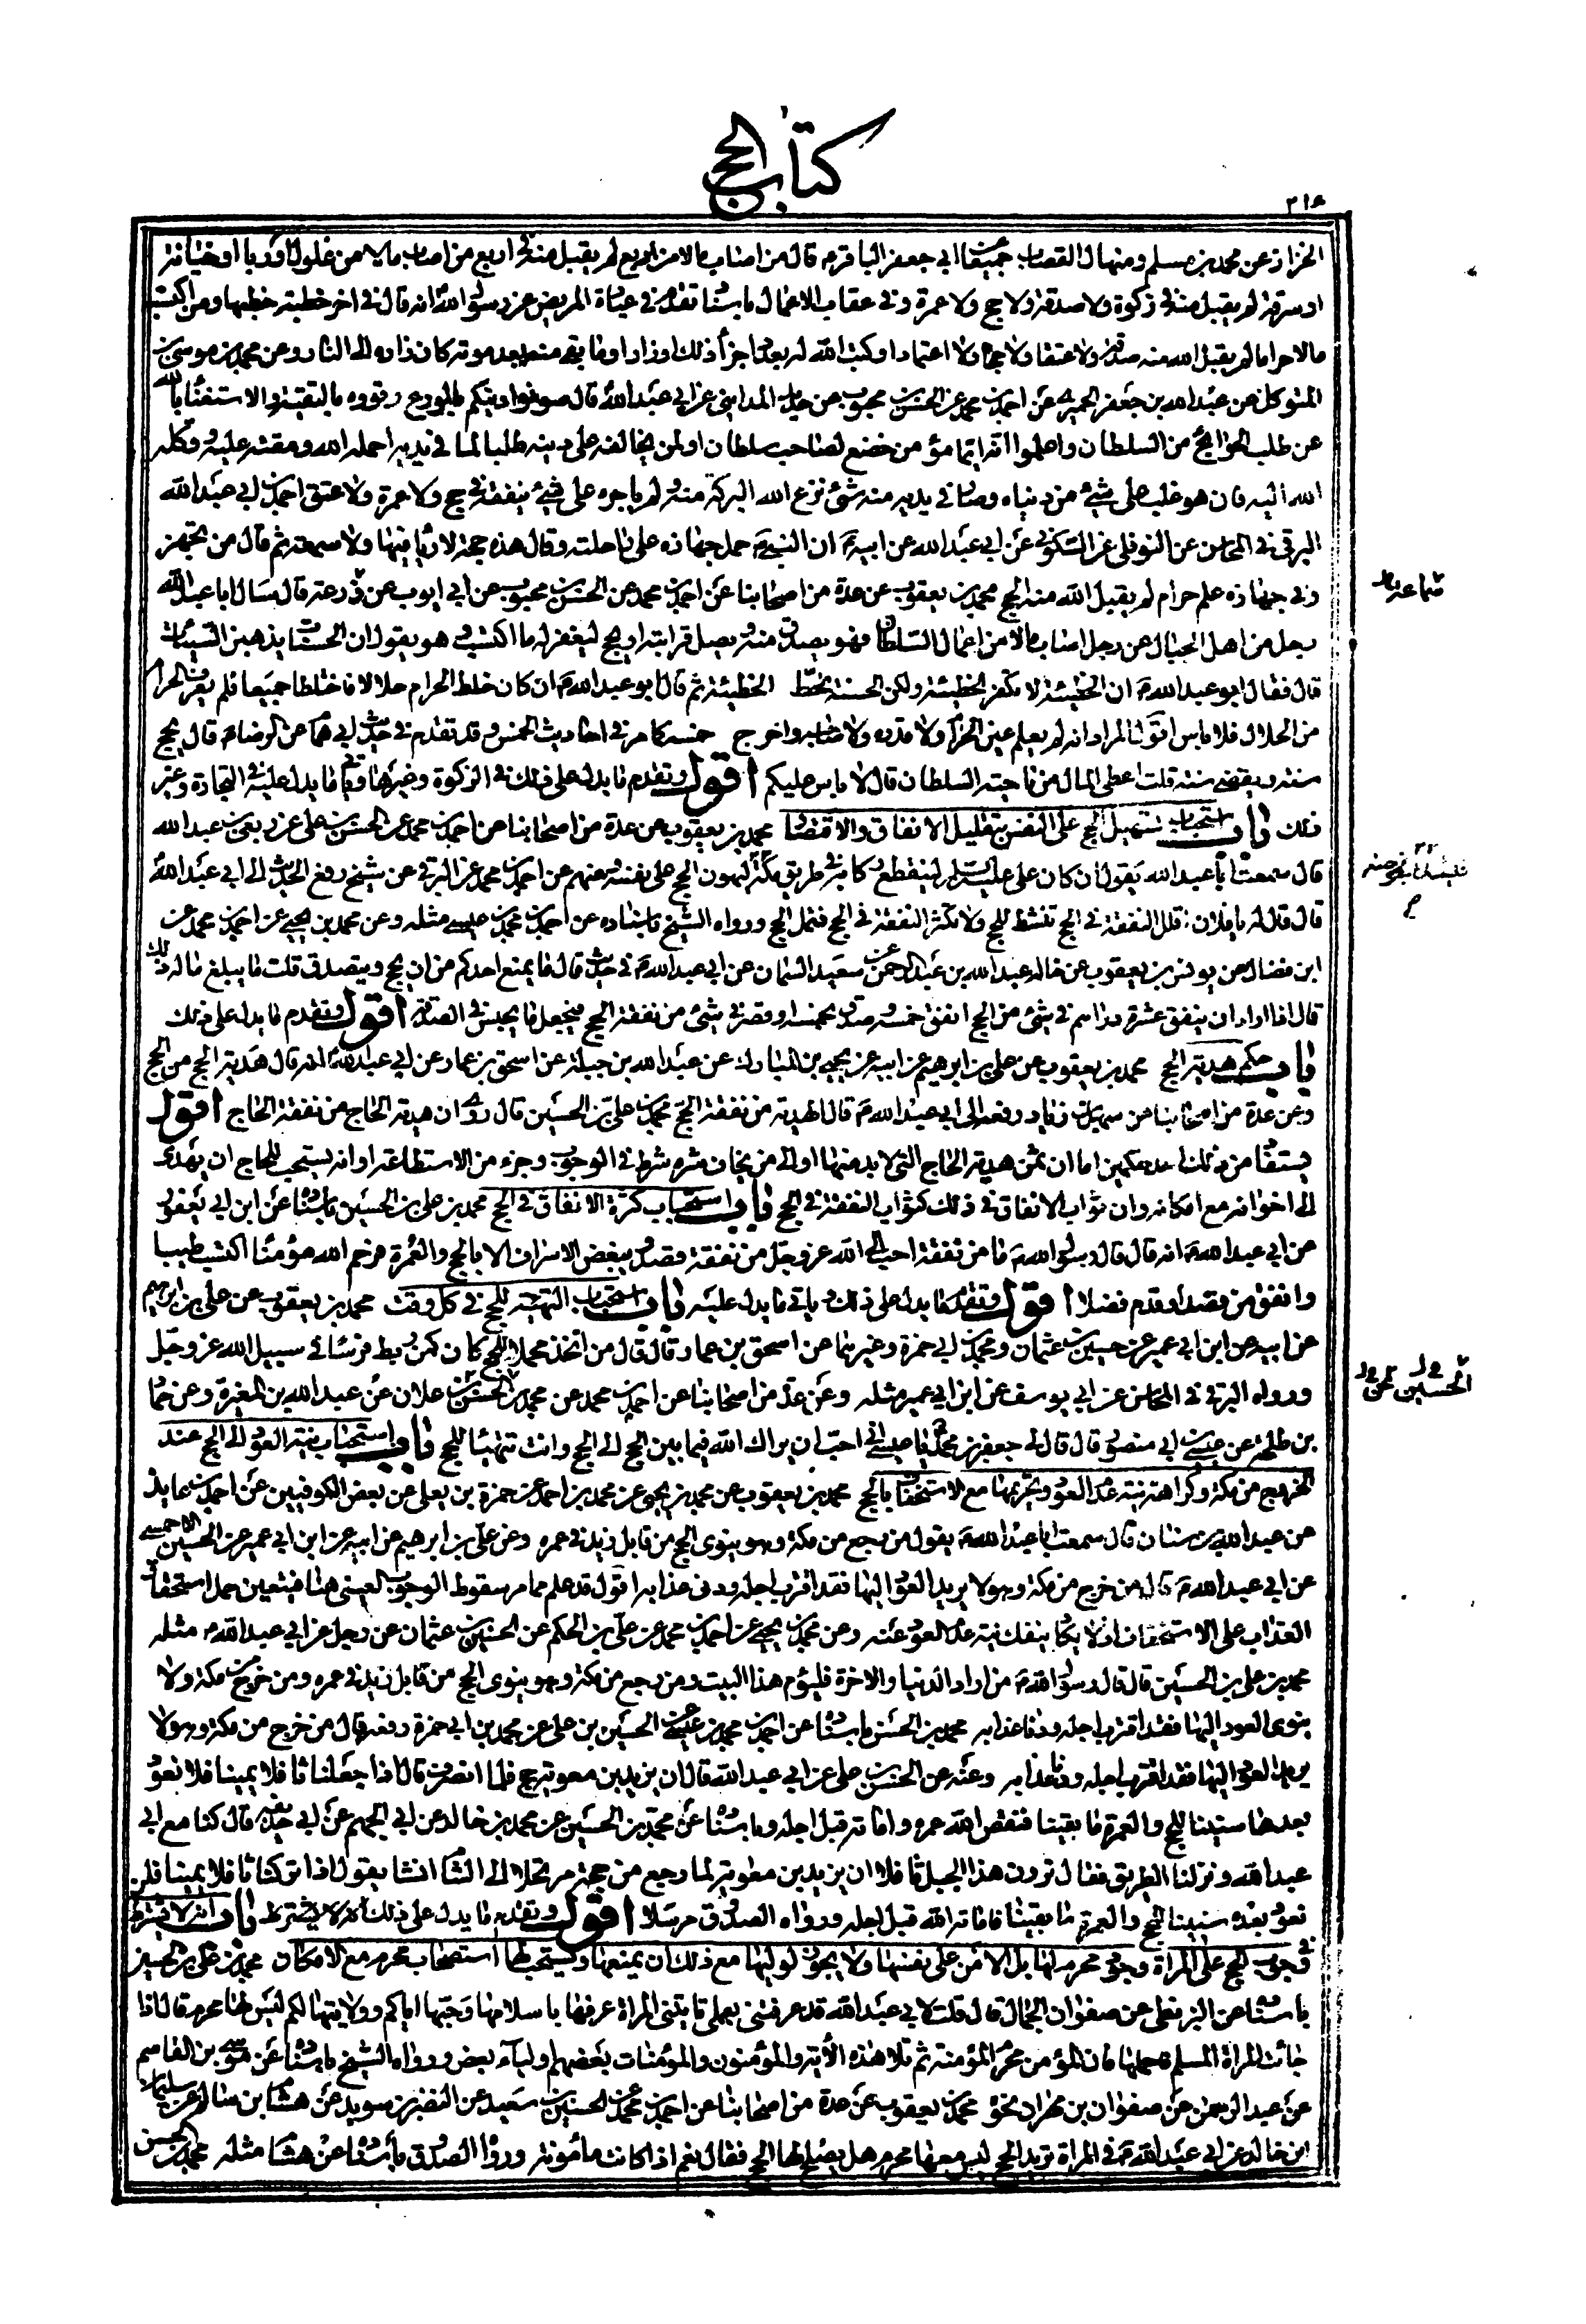 كتاب الحج
٢١٤
الخزاز عن محمد بن مسلم ومنهال القصاب جميعا عن ابي جعفر الباقر ع قال من اصاب مالا من اربع لم يقبل منه في اربع من اصاب مالا من غلول او ربا او خيانة
او سرقة لم يقبل منه في زكوة ولا صدقة ولا حج ولا عمرة وفي عقاب الاعمال باسناد تقدم في عيادة المريض عن رسول الله انه قال في اخر خطبة خطبها ومن اكتسب
مالا حراما لم يقبل الله منه صدقة ولا عتقا ولا حجا ولا اعتمارا وكتب الله له بعدد اجزاء ذلك اوزارا وما بقي منه بعد موته كان زاده الى النار وعن محمد بن موسى بن
المتوكل عن عبد الله بن جعفر الحميري عن احمد بن محمد عن الحسن بن محبوب عن حديد المدايني عن ابي عبد الله قال صونوا دينكم بالورع وقووه بالتقية والاستغناء بالله
عن طلب الحوائج من السلطان واعلموا انه ايما مؤمن خضع لصاحب سلطان او لمن يخالفه على دينه طلبا لما في يديه اخمله الله ومقته عليه ووكله
الله اليه فان هو غلب على شيء من دنياه وصار في يديه منه شيء نزع الله البركة منه ولم ياجره على شيء ينفقه في حج ولا عمرة ولا عتق احمد بن ابي عبد الله
البرقي في المحاسن عن النوفلي عن السكوني عن ابي عبد الله عن ابيه ع ان النبي ص حمل جهازه على راحلته وقال هذه حجة لا رياء فيها ولا سمعة ثم قال من تجهز
وفي جهازه علم حرام لم يقبل الله منه الحج محمد بن يعقوب عن عدة من اصحابنا عن احمد بن محمد عن الحسن بن محبوب عن ابي ايوب عن زرعة قال سال ابا عبد الله
سماعة
رجل من اهل الجبال عن رجل اصاب مالا من اعمال السلطان فهو يصدق منه ويصل قرابته او يحج ليغفر له ما اكتسب وهو يقول ان الحسنات يذهبن السيئات
قال فقال ابو عبد الله ع ان الخطيئة لا تكفر الخطيئة ولكن الحسنة تحط الخطيئة ثم قال ابو عبد الله ع ان كان خلط الحرام حلالا فاختلطا جميعا فلم يعرف الحرام
من الحلال فلا باس اقول المراد انه لم يعلم عين الحرام ولا قدره ولا صاحبه واخرج خمسه كما مر في احاديث الخمس وقد تقدم في حديث ابي همام عن الرضا ع قال يحج
سنة ويقضي سنة قلت اعطى المال من ناحية السلطان قال لا باس عليكم اقول وتقدم ما يدل على ذلك في الزكوة وغيرها وياتي ما يدل عليه في التجارة وغير
ذلك باب استحباب تسهيل الحج على النفس بتقليل الانفاق والاقتصاد محمد بن يعقوب عن عدة من اصحابنا عن احمد بن محمد عن الحسن بن علي عن ربعي بن عبد الله
قال سمعت ابا عبد الله يقول ان كان علي عليه السلام لينقطع ركابه في طريق مكة ليهون الحج على نفسه وعنهم عن احمد بن محمد عن البرقي عن شيخ رفع الحديث الى ابي عبد الله
قال قال له يا فلان اقلل النفقة في الحج تنشط للحج ولا تكثر النفقة في الحج فتمل الحج ورواه الشيخ باسناده عن احمد بن محمد بن عيسى مثله وعن محمد بن يحيى عن احمد بن محمد عن
ابن فضال عن يونس بن يعقوب عن خاله عبد الله بن عبد الرحمن عن سعيد السمان عن ابي عبد الله ع في حديث قال ما يمنع احدكم من ان يحج ويتصدق قلت ما يبلغ ماله ذلك
قال اذا اراد ان ينفق عشرة دراهم في شيء من الحج انفق خمسة وتصدق بخمسة او قصر في شيء من نفقة الحج فيجعل ما يحبس في الصدقة اقول وتقدم ما يدل على ذلك
باب حكم هدية الحج محمد بن يعقوب عن علي بن ابرهيم عن ابيه عن يحيى بن المبارك عن عبد الله بن جبلة عن اسحق بن عمار عن ابي عبد الله انه قال هدية الحج من الحج
وعن عدة من اصحابنا عن سهل بن زياد رفعه الى ابي عبد الله ع قال الهدية من نفقة الحج محمد بن علي بن الحسين قال روى ان هدية الحاج من نفقة الحاج اقول
يستفاد من ذلك احد حكمين اما ان ثمن هدية الحاج التي لا بد منها اوالى من يخاف شره شرط في الوجوب وجزء من الاستطاعة او انه يستحب للحاج ان يهدى
الى اخوانه مع امكانه وان ثواب الانفاق في ذلك كثواب النفقة في الحج باب استحباب كثرة الانفاق في الحج محمد بن علي بن الحسين باسناده عن ابن ابي يعفور
عن ابي عبد الله ع انه قال قال رسول الله ص ما من نفقة احب الى الله عز وجل من نفقة قصد ويبغض الاسراف الا بالحج والعمرة فرحم الله مؤمنا اكتسب طيبا
وانفق من قصد او قدم فضلا اقول وتقدم ما يدل على ذلك وياتي ما يدل عليه باب استحباب التهيئة للحج في كل وقت محمد بن يعقوب عن علي بن ابرهيم
عن ابيه عن ابن ابي عمير عن حسين بن عثمان ومحمد بن ابي حمزة وغيرهما عن اسحق بن عمار قال قال من اتخذ محملا للحج كان كمن ربط فرسا في سبيل الله عز وجل
ورواه البرقي في المحاسن عن ابي يوسف عن ابن ابي عمير مثله وعن عدة من اصحابنا عن احمد بن محمد عن محمد بن الحسن بن علان عن عبد الله بن المغيرة وعن حماد
بن طلحة عن عيسى بن ابي منصور قال قال لي جعفر بن محمد يا عيسى اني احب ان يراك الله فيما بين الحج الى الحج وانت تتهيئا للحج باب استحباب نية العود الى الحج عند
الخروج من مكة وكراهة نية عدم العود وتحريمها مع الاستخفاف بالحج محمد بن يعقوب عن محمد بن يحيى عن محمد بن احمد عن حمزة بن يعلى عن بعض الكوفيين عن احمد بن عايذ
عن عبد الله بن سنان قال سمعت ابا عبد الله ع يقول من رجع من مكة وهو ينوي الحج من قابل زيد في عمره وعن علي بن ابرهيم عن ابيه عن ابن ابي عمير عن الحسين الاحمسي
عن ابي عبد الله ع قال من خرج من مكة وهو لا يريد العود اليها فقد اقترب اجله ودنى عذابه اقول قد علم مما مر سقوط الوجوب العيني هنا فيتعين حمل استحقاق
العذاب على الاستخفاف اذ لا يكاد ينفك نية عدم العود عنه وعن محمد بن يحيى عن احمد بن محمد عن علي بن الحكم عن الحسين بن عثمان عن رجل عن ابي عبد الله ع مثله
محمد بن علي بن الحسين قال قال رسول الله ص من اراد الدنيا والاخرة فليؤم هذا البيت ومن رجع من مكة وهو ينوي الحج من قابل زيد في عمره ومن خرج من مكة ولا
ينوى العود اليها فقد اقترب اجله ودنا عذابه محمد بن الحسن باسناده عن احمد بن محمد بن عيسى عن الحسين بن علي عن محمد بن ابي حمزة رفعه قال من خرج من مكة وهو لا
يريد العود اليها فقد اقترب اجله ودنا عذابه وعنه عن الحسن بن علي عن ابي عبد الله قال ان يزيد بن معوية حج فلما انصرف قال اذا جعلنا ثافلا يمينا فلا نعود
بعدها سنينا للحج والعمرة ما بقينا فنقص الله عمره واماته قبل اجله وباسناده عن محمد بن الحسين عن محمد بن خالد عن ابي الجهم عن ابي خديجة قال كنا مع ابي
عبد الله ونزلنا الطريق فقال ترون هذا الجبل ثافلا ان يزيد بن معوية لما رجع من حجه مرتحلا الى الشام انشا يقول اذا تركنا ثافلا يمينا فلن
نعود بعده سنينا للحج والعمرة ما بقينا فاماته الله قبل اجله ورواه الصدوق مرسلا اقول وتقدم ما يدل على ذلك باب انه لا يشترط
في وجوب الحج على المراة وجود محرم لها بل الامن على نفسها ولا يجوز لوليها مع ذلك ان يمنعها ويستحب لها استصحاب محرم مع الامكان محمد بن علي بن الحسين
باسناده عن البزنطي عن صفوان الجمال قال قلت لابي عبد الله قد عرفتني بعملي تاتيني المراة اعرفها باسلامها وحبها اياكم وولايتها لكم ليس لها محرم قال اذا
جائت المراة المسلمة فاحملها فان المؤمن محرم المؤمنة ثم تلا هذه الاية والمؤمنون والمؤمنات بعضهم اولياء بعض ورواه الشيخ باسناده عن موسى بن القاسم
عن عبد الرحمن عن صفوان بن مهران نحوه محمد بن يعقوب عن عدة من اصحابنا عن احمد بن محمد عن الحسين بن سعيد عن النضر بن سويد عن هشام بن سالم عن سليمان
ابن خالد عن ابي عبد الله ع في المراة تريد الحج ليس معها محرم هل يصلح لها الحج فقال نعم اذا كانت مأمونة ورواه الصدوق باسناده عن هشام مثله محمد بن الحسن